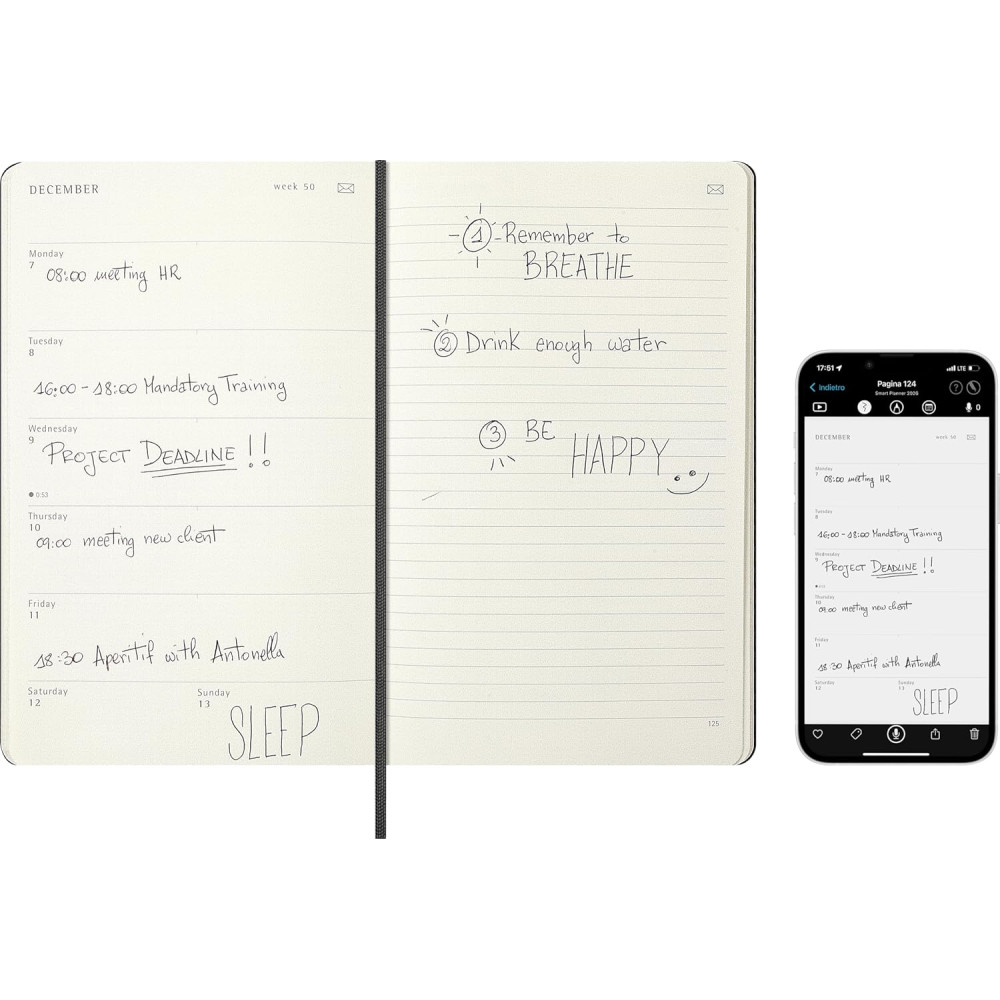 DECEMBER
week 50
Monday
7
08:00 meeting HR
Tuesday
8
16:00 - 18:00 Mandatory Training
Wednesday
9
PROJECT DEADLINE !!
0:53
Thursday
10
09:00 meeting new client
Friday
11
18:30 Aperitif with Antonella
Saturday
12
Sunday
13
SLEEP
1 Remember to
BREATHE
2 Drink enough water
3 BE
HAPPY
125
17:51
LTE
Indietro
Pagina 124
Smart Planner 2026
0
DECEMBER
week 50
Monday
7
08:00 meeting HR
Tuesday
8
16:00 - 18:00 Mandatory Training
Wednesday
9
PROJECT DEADLINE !!
Thursday
10
09:00 meeting new client
Friday
11
18:30 Aperitif with Antonella
Saturday
12
Sunday
13
SLEEP